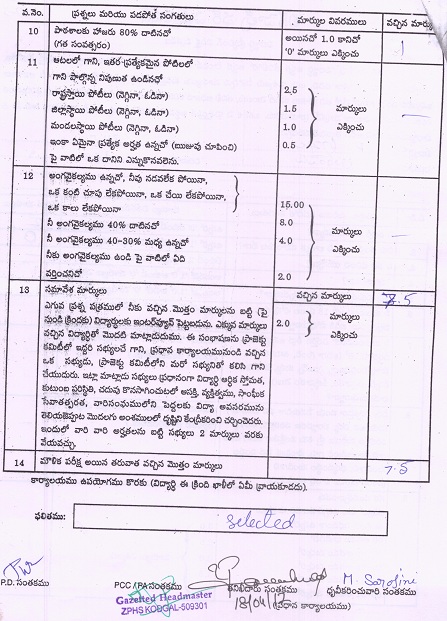 వ.నెం. ప్రశ్నలు మరియు వడపోత సంగతులు మార్కుల వివరములు వచ్చిన మార్కు
10 పాఠశాలకు హాజరు 80% దాటినచో (గత సంవత్సరం) అయినచో 1.0 కానిచో '0' మార్కులు ఎక్కించు 1
11 ఆటలలో గాని, ఇతర ప్రత్యేకమైన పోటీలలో
గాని పాల్గొన్న నిపుణత ఉండినచో
రాష్ట్రస్తాయి పోటీలు (నెగ్గినా, ఓడినా) 2.5
జిల్లాస్తాయి పోటీలు (నెగ్గినా, ఓడినా) 1.5 మార్కులు
మండలస్తాయి పోటీలు (నెగ్గినా, ఓడినా) 1.0 ఎక్కించు
ఇంకా ఏమైనా ప్రత్యేక అర్హత ఉన్నచో (ఋజువు చూపించి) 0.5
పై వాటిలో ఒక దానిని ఎన్నుకొనవలెను.
12 అంగవైకల్యము ఉన్నచో, నీవు నడవలేక పోయినా,
ఒక కంటి చూపు లేకపోయినా, ఒక చేయి లేకపోయినా,
ఒక కాలు లేకపోయినా 15.00
నీ అంగవైకల్యము 40% దాటినచో 8.0 మార్కులు
నీ అంగవైకల్యము 40-30% మధ్య ఉన్నచో 4.0 ఎక్కించు
నీకు అంగవైకల్యము ఉండి పై వాటిలో ఏది
వర్తించనిచో 2.0
13 సమావేశ మార్కులు వచ్చిన మార్కులు 7.5
ఎగువ ప్రశ్న పత్రములో నీకు వచ్చిన మొత్తం మార్కులను బట్టి (పై
నుండి క్రిందకు) విద్యార్థులకు ఇంటర్వ్యూన్ పెట్టబడును. ఎక్కువ మార్కులు 2.0 మార్కులు
వచ్చిన విద్యార్థితో మొదటి మాట్లాడుదుము. ఈ సంభాషణను ప్రాజెక్టు ఎక్కించు
కమిటీలో ఇద్దరి సభ్యులచే గాని, ప్రధాన కార్యాలయమునుండి వచ్చిన
ఒక సభ్యుడు, ప్రాజెక్టు కమిటీలోని మరో సభ్యునితో కలిసి గాని
చేయుదురు. ఇట్లా మాట్లాడు సభ్యులు ప్రధానంగా విద్యార్థి ఆర్థిక స్తోమత,
కుటుంబ పరిస్థితి, చదువు కొనసాగించుటలో ఆసక్తి, వ్యక్తిత్వము, సాంఘీక
సేవాతత్పరత, వారిసంఘములోని పెద్దలకు విద్యా అవసరమును
తెలియజెప్పుట మొదలగు అంశములలో దృష్టిని కేంద్రీకరించి చర్చించెదరు.
ఇందులో వారి వారి అర్హతలను బట్టి సభ్యులు 2 మార్కులు వరకు
వేయవచ్చు.
14 మౌలిక పరీక్ష అయిన తరువాత వచ్చిన మొత్తం మార్కులు 7.5
కార్యాలయము ఉపయోగము కొరకు (విద్యార్థి ఈ క్రింది ఖాళీలో ఏమీ వ్రాయకూడదు).
ఫలితము: selected
P.D. సంతకము PCC / PA సంతకము తనిఖీదారు సంతకము M. Sarojini ధృవీకరించువారి సంతకము
Gazetted Headmaster (ప్రధాన కార్యాలయము)
ZPHS KODGAL-509301